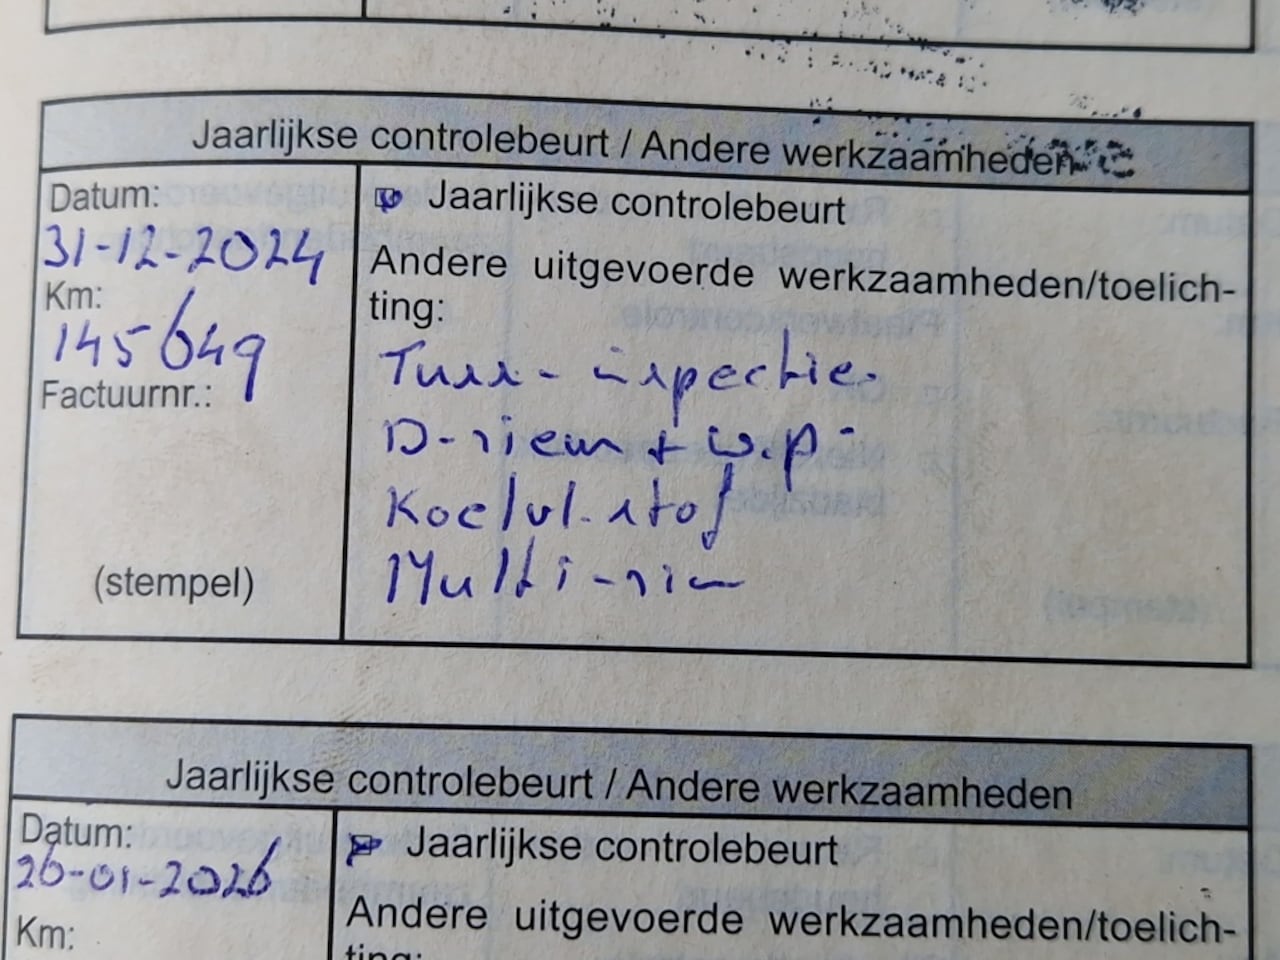 Jaarlijkse controlebeurt / Andere werkzaamheden
Datum:
31-12-2024
Km:
145649
Factuurnr.:
(stempel)
Jaarlijkse controlebeurt
Andere uitgevoerde werkzaamheden/toelich-
ting:
Tuss-inspectie.
D-riem + w.p.
Koelvl.stof
Multi-riem
Jaarlijkse controlebeurt / Andere werkzaamheden
Datum:
26-01-2026
Km:
Jaarlijkse controlebeurt
Andere uitgevoerde werkzaamheden/toelich-
ting: